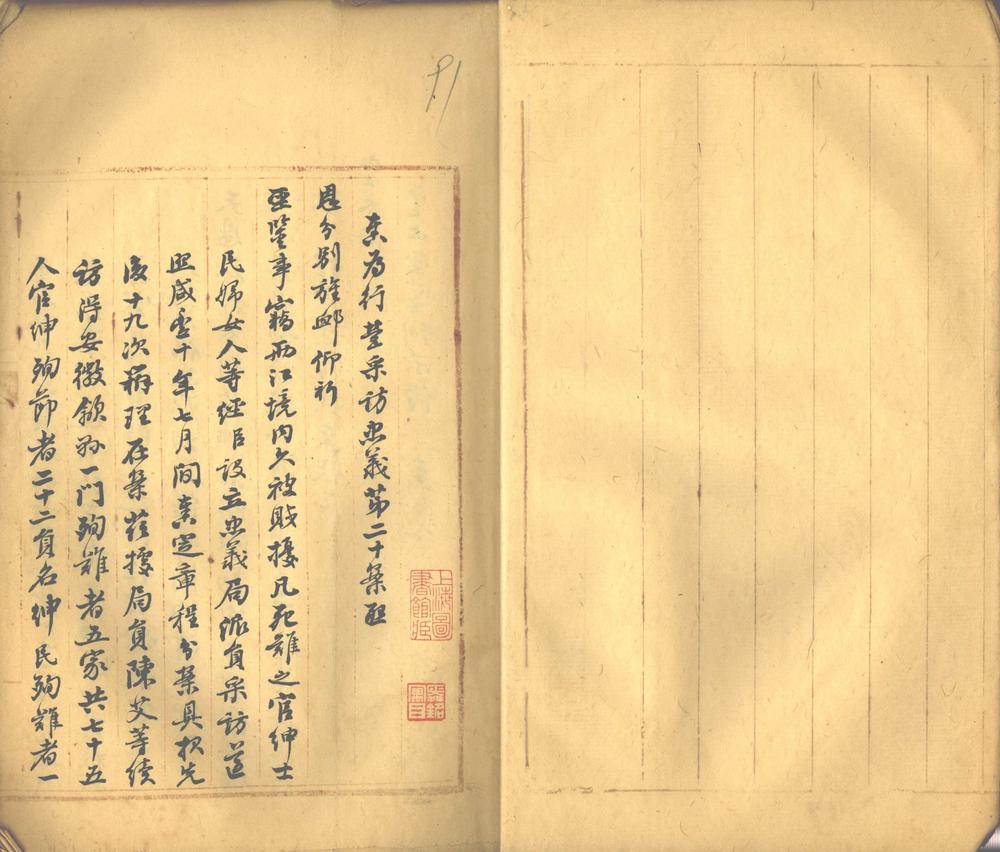 奏为行營采訪忠義第二十案懇
恩分別旌䘏仰祈
聖鑒事竊兩江境内久被賊擾凡死難之官紳士
民婦女人等經臣設立忠義局派員采訪遵
照咸豐十年七月間奏定章程分案具報先
後十九次辦理在案茲據局員陳艾等續
訪得安徽歙縣一門殉難者五家共七十五
人官紳殉節者二十二員名紳民殉難者一
上海圖書館藏